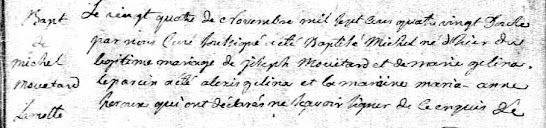 Bapt
de
michel
Mouetard
Le vingt quatre de Novembre mil sept cens quatre vingt
par nous Curé soussigné a été Baptisé Michel né d'hier du
legitime mariage de joseph Mouetard et de marie gelina.
le parein a été alexis gelina et la maraine maria-anne
heroux qui ont déclarés ne sçavoir signer de ce enquis